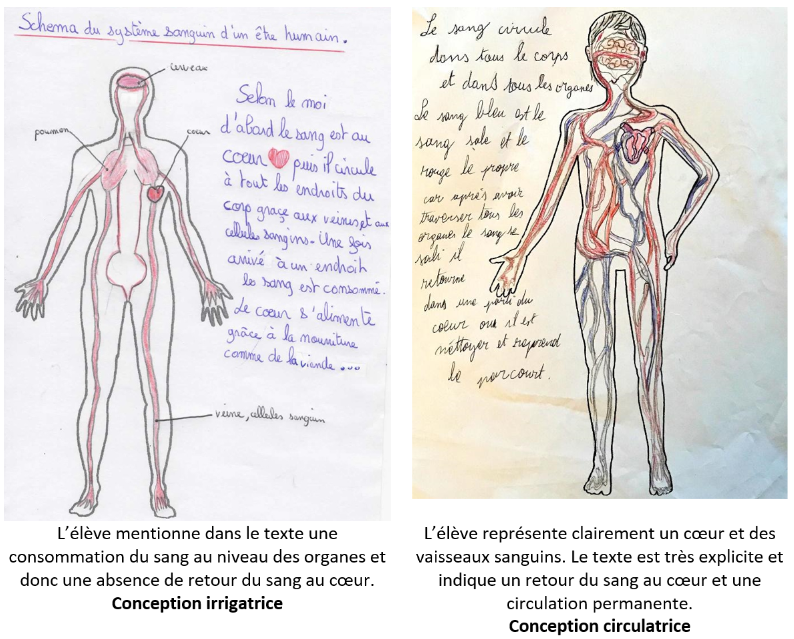 Schema du système sanguin d'un être humain.
cerveau
poumon
coeur
Selon le moi
d'abord le sang est au
coeur puis il circule
à tout les endroits du
corp graçe aux veines et aux
cellules sangins. Une fois
arrivé à un endroit
les sang est consommé.
Le coeur s'alimente
grâce à la nouriture
comme de la viande ...
veine, cellules sanguin
L'élève mentionne dans le texte une
consommation du sang au niveau des organes et
donc une absence de retour du sang au cœur.
Conception irrigatrice
Le sang circule
dans tous le corps
et dans tous les organes
Le sang bleu est le
sang sale et le
rouge le propre
car après avoir
traverser tous les
organes le sang se
sali il
retourne
dans une parti du
coeur ou il est
nettoyer et reprend
le parcourt.
L'élève représente clairement un cœur et des
vaisseaux sanguins. Le texte est très explicite et
indique un retour du sang au cœur et une
circulation permanente.
Conception circulatrice